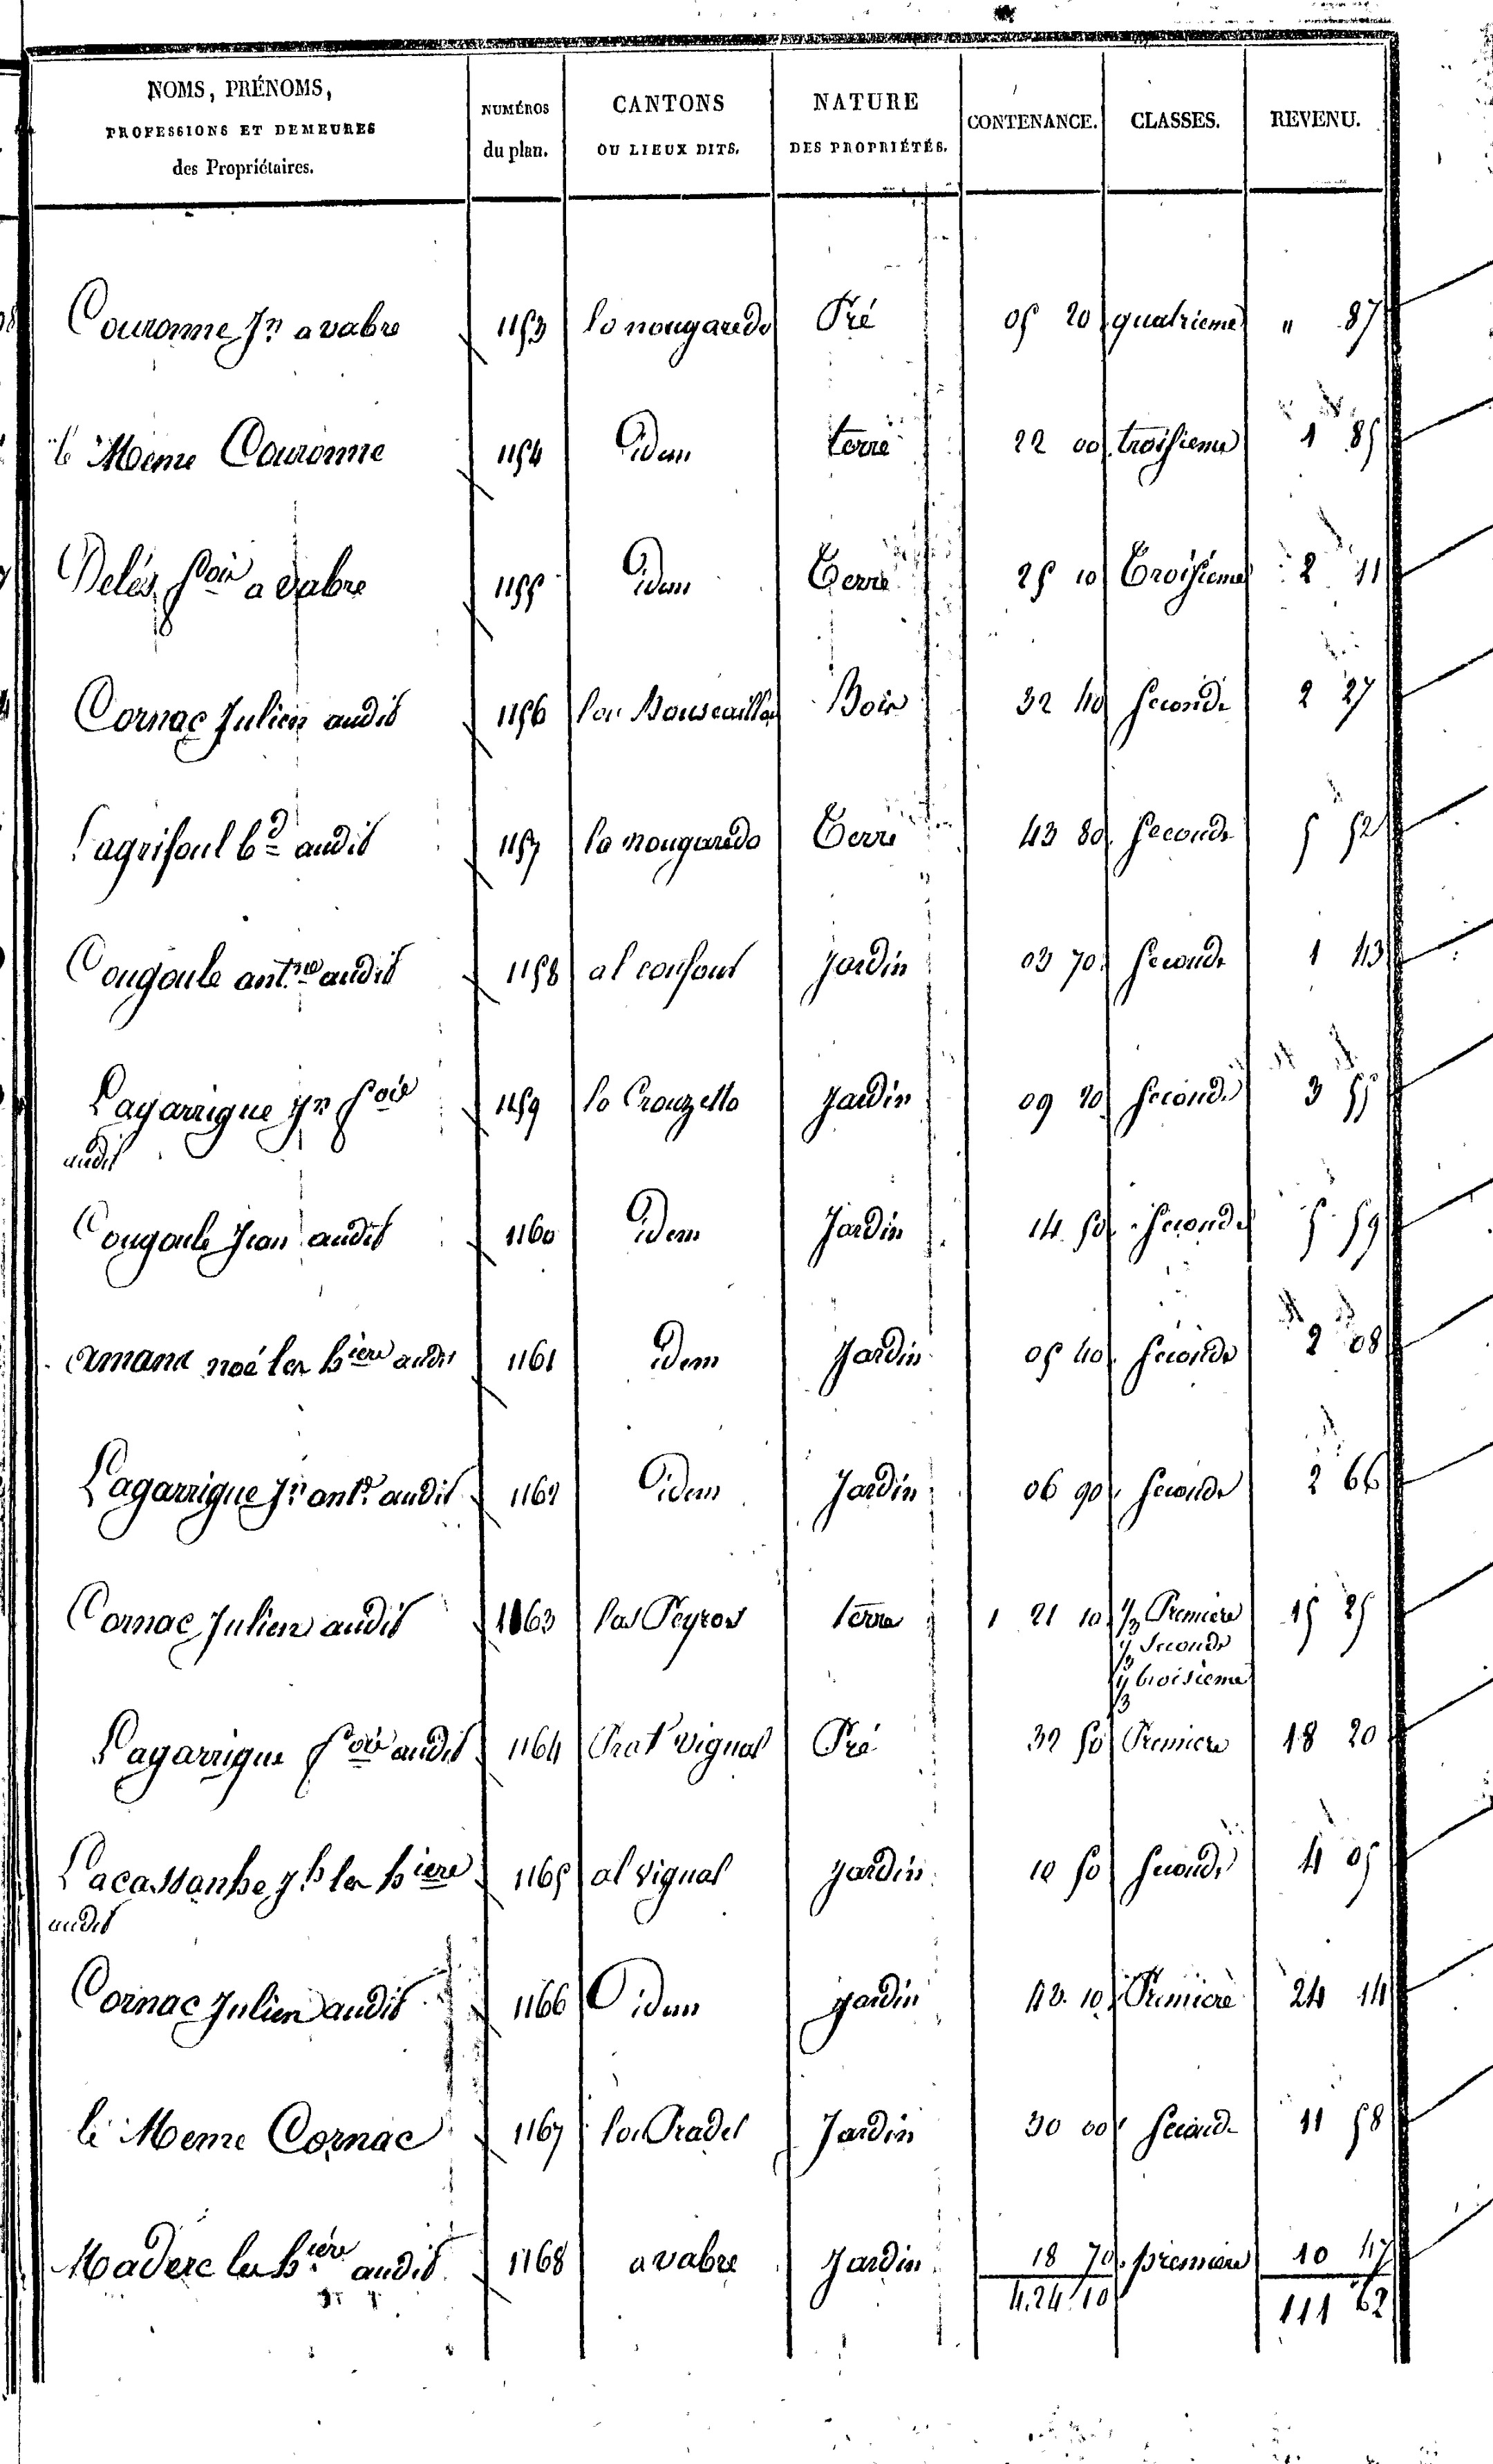 NOMS, PRÉNOMS, PROFESSIONS ET DEMEURES des Propriétaires. NUMÉROS du plan. CANTONS OU LIEUX DITS. NATURE DES PROPRIÉTÉS. CONTENANCE. CLASSES. REVENU.
Couronne Jn a vabre 1153 lo nougaredo Pré 05 20 quatrieme " 87
le Meme Couronne 1154 idem terre 22 00 troisieme 1 85
Delés fois a Vabre 1155 idem Terre 25 10 Troisieme 2 11
Cornac Julien audit 1156 Bois 32 40 seconde 2 27
Lagrifoul bd audit 1157 la nougaredo Terre 43 80 seconde 5 52
Cougoule antne audit 1158 al Jardin 03 70 seconde 1 43
Lagarrigue Jn fois audit 1159 lo Crouzetto Jardin 09 20 seconde 3 55
Cougoule Jean audit 1160 idem Jardin 14 50 seconde 5 59
amand noé les hiers audit 1161 idem Jardin 05 40 seconde 2 08
Lagarrigue Jn ante audit 1162 idem Jardin 06 90 seconde 2 66
Cornac Julien audit 1163 las Peyros terre 1 21 10 1/3 Premiere 15 25
1/3 seconde
1/3 troisieme
Lagarrigue fois audit 1164 Prat vignal Pré 32 50 Premiere 18 20
Lacassanhe Jh les hiers audit 1165 al vignal Jardin 10 50 seconde 4 05
Cornac Julien audit 1166 idem Jardin 43 10 Premiere 24 14
le Meme Cornac 1167 lou Pradel Jardin 30 00 seconde 11 58
Maderc les hiers audit 1168 a vabre Jardin 18 70 premiere 10 47
4.24.10 111 62